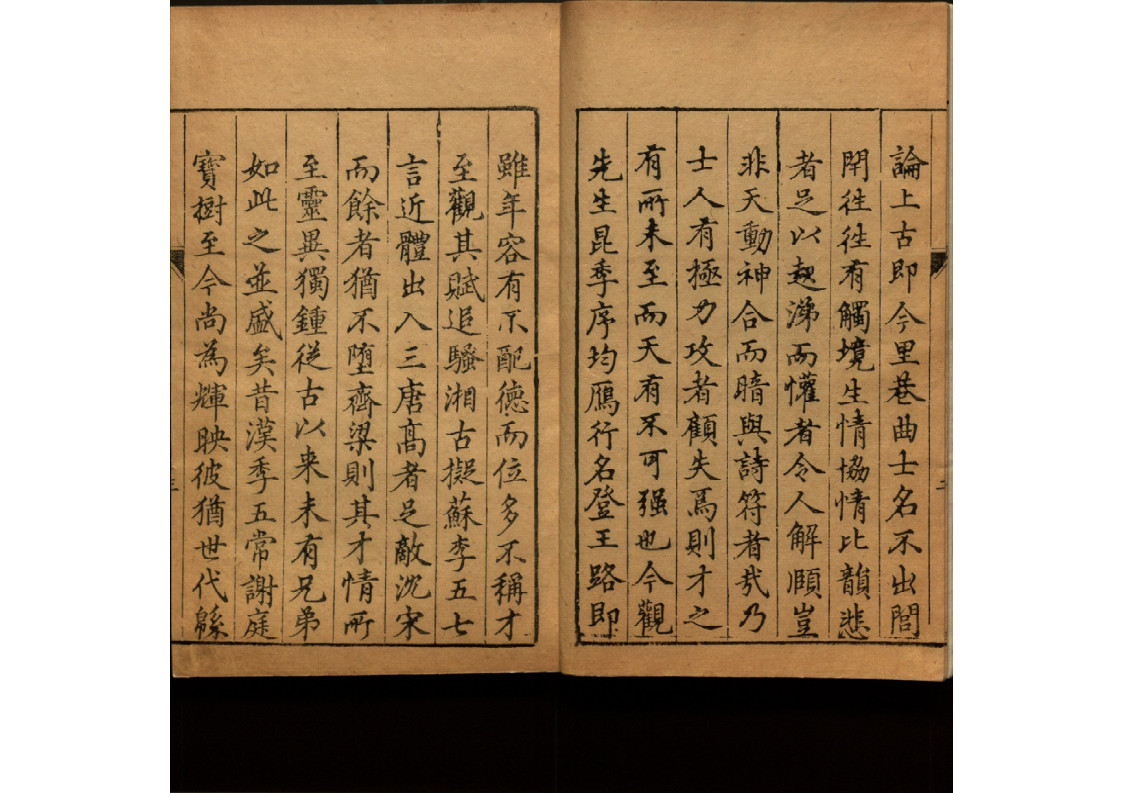 論上古即今里巷曲士名不出閭
閈徃徃有觸境生情協情比韻悲
者足以趍涕而懽者令人解頤豈
非天動神合而暗與詩符者㦲乃
士人有極力攻者顧失焉則才之
有所未至而天有不可强也今觀
先生昆季序均鴈行名登王路即
二
雖年容有不配德而位多不稱才
至觀其賦追騷湘古擬蘇李五七
言近體出入三唐髙者足敵沈宋
而餘者猶不墮齊梁則其才情所
至靈異獨鍾從古以来未有兄弟
如此之並盛矣昔漢季五常謝庭
寶樹至今尚為輝映彼猶世代緜
三